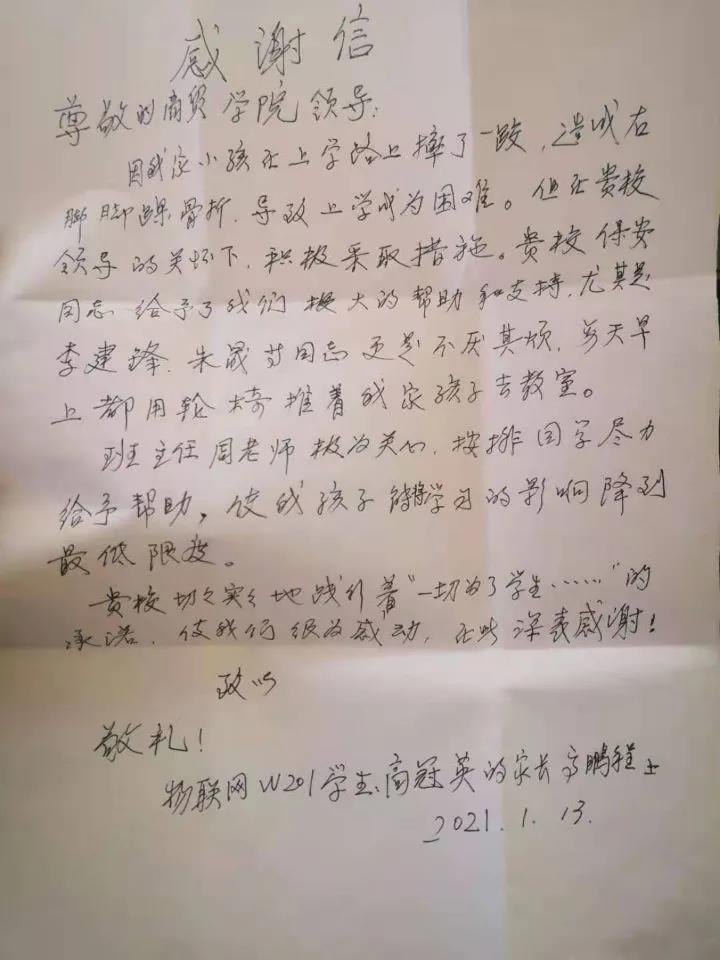 感谢信
尊敬的商贸学院领导:
因我家小孩在上学路上摔了一跤,造成右
脚脚踝骨折,导致上学成为困难。但在贵校
领导的关怀下,积极采取措施。贵校保安
同志给予了我们极大的帮助和支持,尤其是
李建锋、朱晟 同志更是不厌其烦,每天早
上都用轮椅推着我家孩子去教室。
班主任周老师极为关心,按排同学尽力
给予帮助,使我孩子 学习的影响降到
最低限度。
贵校切切实实地践行着“一切为了学生……”的
承诺,使我们很为感动,在此深表感谢!
致以
敬礼!
物联网W201学生:高冠英的家长高鹏程
2021.1.13.